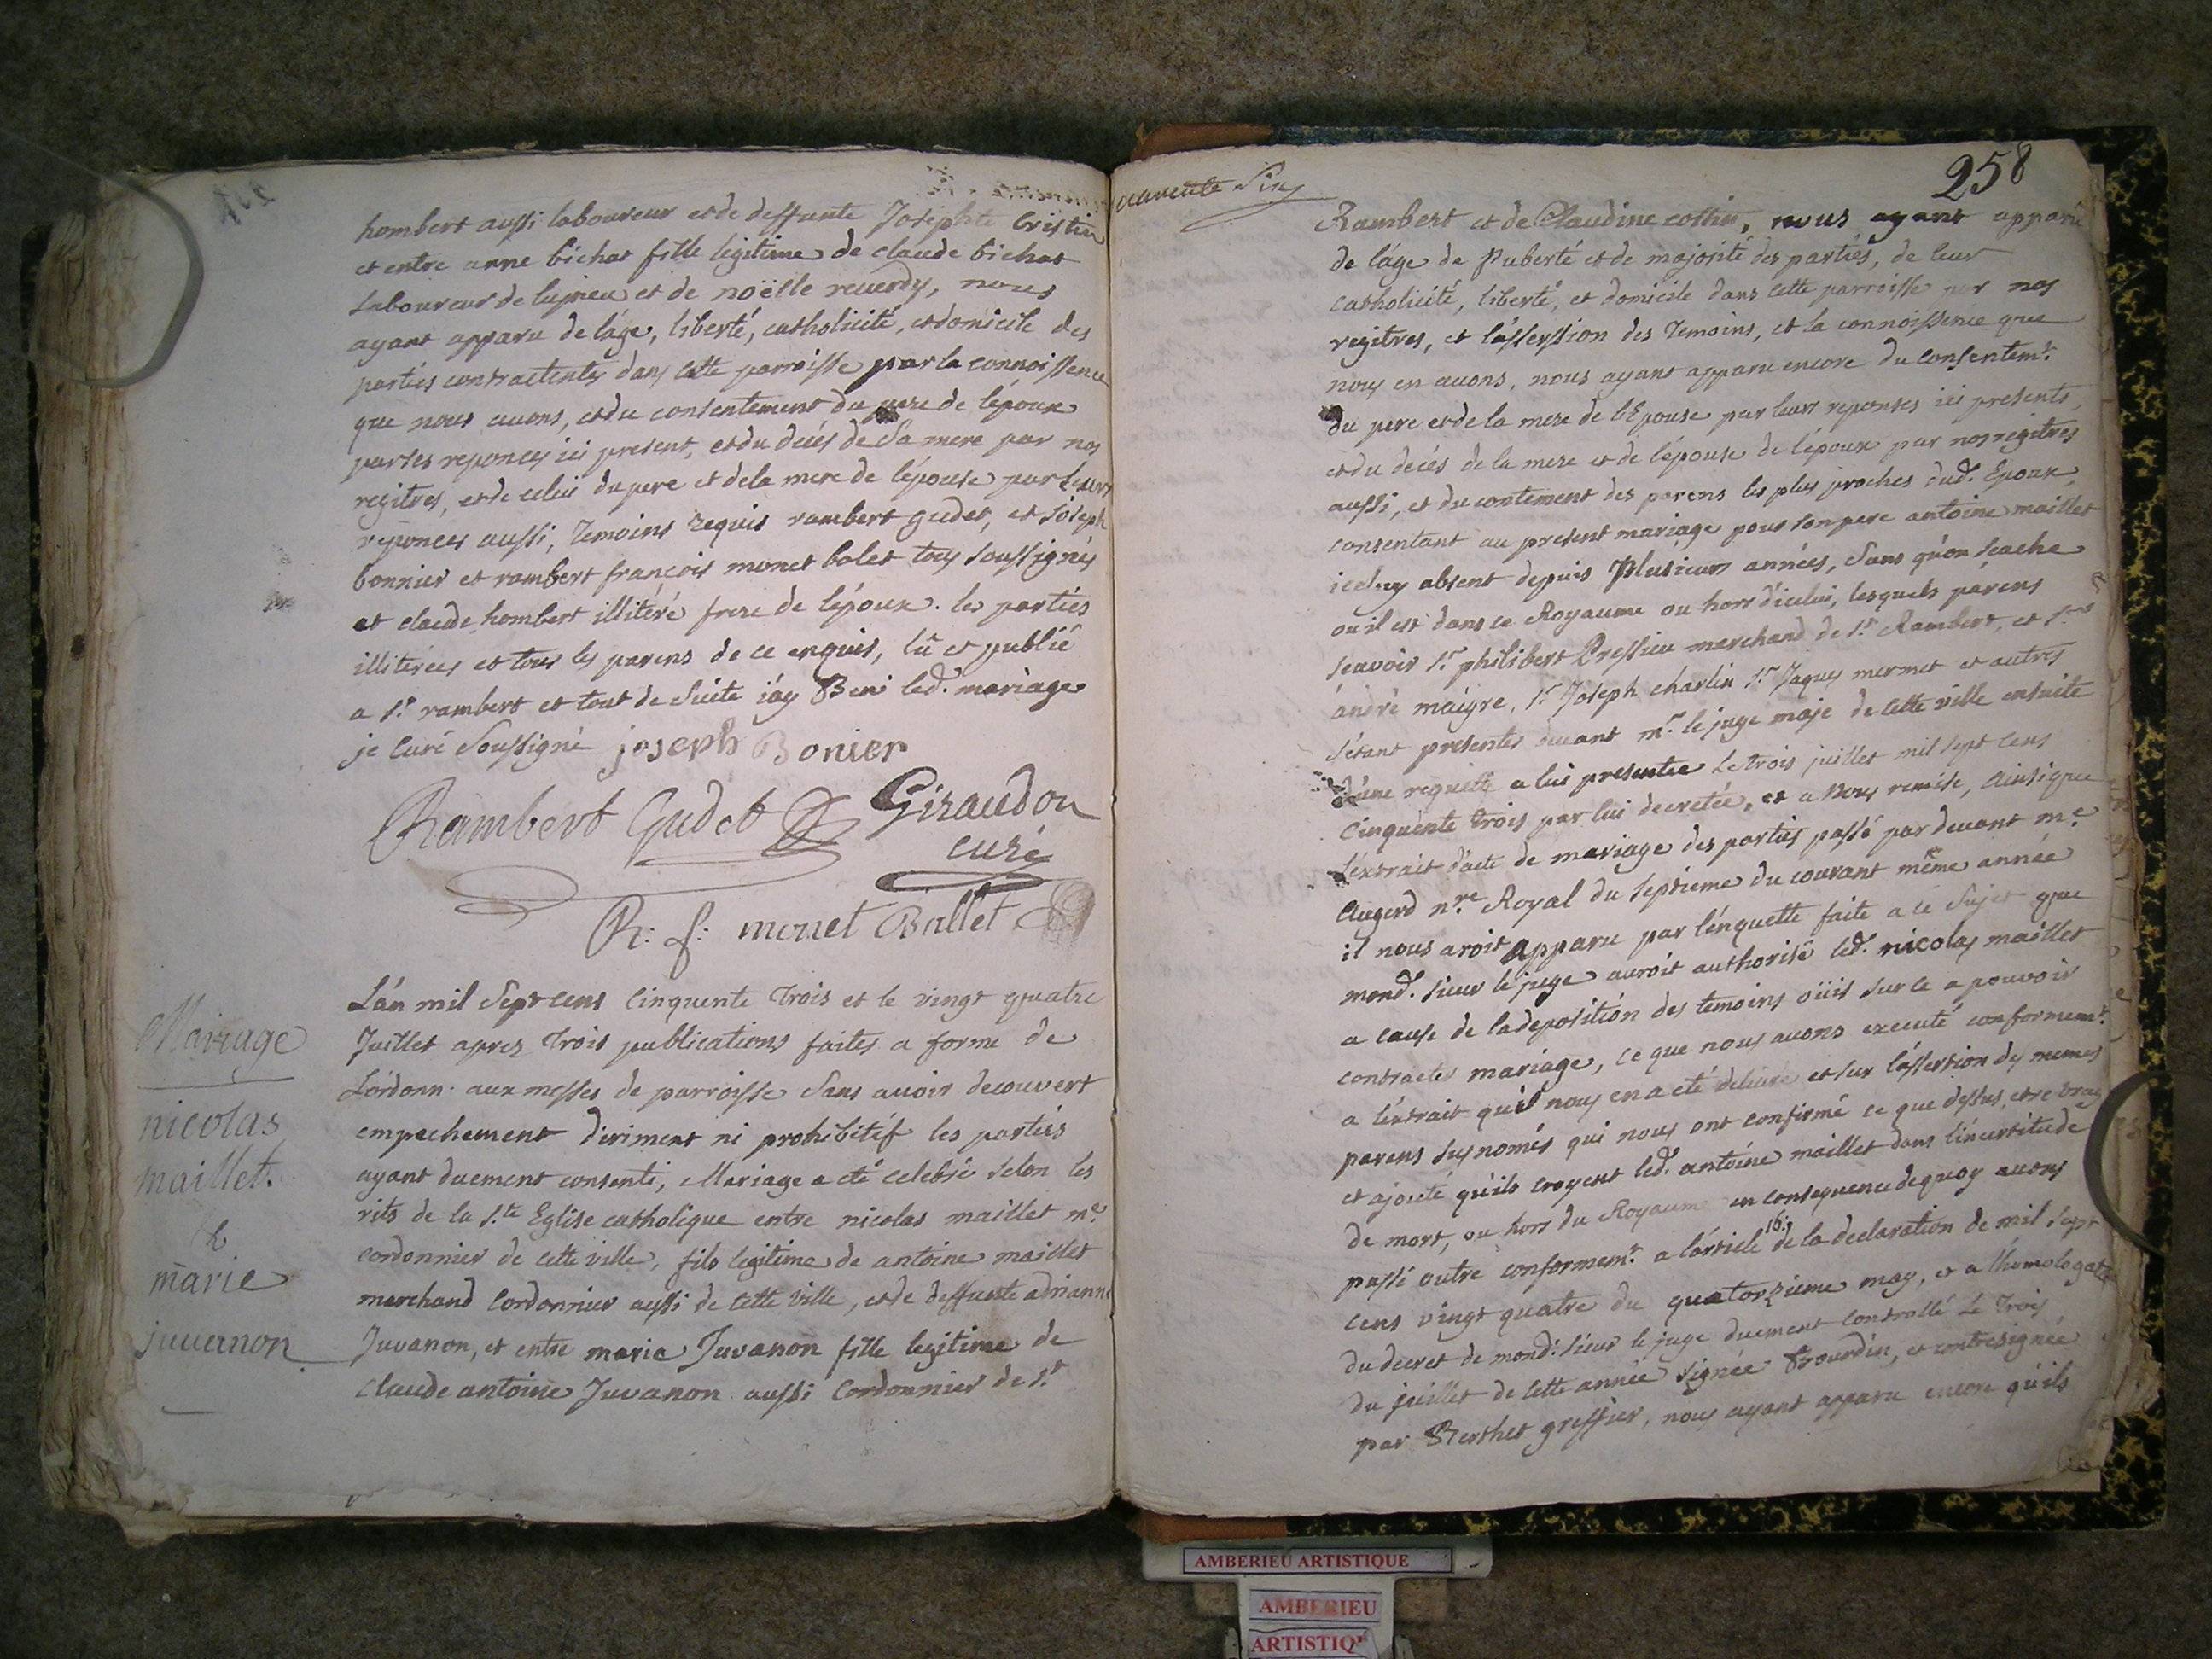 hombert aussi laboureur et de deffunte Josephte Cristin
et entre anne bichat fille legitime de claude bichat
laboureur de lupieu et de noëlle reuerdy, nous
ayant apparu de l'áge, liberté, catholicité, et domicile des
parties contractentes dans cette parroisse par la connoissence
que nous auons, et du consentement du pere de l'époux
par ses reponces ici present, et du decés de Sa mere par nos
regitres, et de celui du pere et de la mere de l'épouse par leurs
réponces aussi, Temoins requis rambert gudet, et Joseph
bonnier et rambert françois monet balet tous soussignés
et claude hombert illitéré frere de l'époux. les parties
illiterées et tous les parens de ce enquis, lû et publié
a St. rambert et tout de Suite j'ay Beni led. mariage
je Curé Soussigné joseph Bonier
Rambert Gudet Giraudon
curé
R: f: monet Ballet
Mariage
nicolas
maillet.
&
marie
juuernon
L'án mil Sept cens Cinquente Trois et le vingt quatre
Juillet apres Trois publications faites a forme de
L'órdonn. aux messes de parroisse Sans auoir decouvert
empechement diriment ni prohibitif les parties
ayant duement consenti, Mariage a eté celebré selon les
rits de la Ste. Eglise catholique entre nicolas maillet me.
cordonnier de cette ville, fils legitime de antoine maillet
marchand Cordonnier aussi de cette ville, et de deffunte adrianne
Juvanon, et entre maria Juvanon fille legitime de
claude antoine Juvanon aussi Cordonnier de St.
258
Rambert et de Claudine cottin, nous ayant apparu
de l'áge de Puberté et de majorité des parties, de leur
catholicité, liberté, et domicile dans cette parroisse par nos
regitres, et l'ássersion des Temoins, et la connoissence que
nous en auons, nous ayant apparu encore du consentemt.
du pere et de la mere de l'Epouse par leurs reponses ici presents,
et du decés de la mere et de l'épouse de l'époux par nos regitres
aussi, et du contement des parens les plus proches dud. Epoux,
consentant au present mariage pour son pere antoine maillet
iceluy absent depuis Plusieurs années, Sans qu'on scache
ou il est dans ce Royaume ou hors d'icelui, lesquels párens
sçauoir Sr. philibert Pressieu marchand de St. Rambert, et Sr.
ándré maigre, Sr. Joseph charlin Sr. Jaques mermet et autres
s'étant presentés deuant mr. le juge maje de cette ville ensuite
d'une requette a lui presentée Le trois juillet mil sept cens
Cinquente trois par lui decretée, et a Nous remise, Ainsi que
L'extrait d'acte de mariage des parties passé par deuant me.
Augerd nre. Royal du septieme du courant même année
il nous aroit apparu par l'énquette faite a ce Sujet que
mond. sieur le juge auroit authorisé led. nicolas maillet
a cause de la deposition des temoins oüis sur ce a pouvoir
contracter mariage, ce que nous auons executé conformemt.
a l'éxtrait qu'il nous en a eté deliuré et sur l'ássertion des memes
parens sus només qui nous ont confirmé ce que dessus, etre vray
et ajouté qu'ils croyent led. antoine maillet dans l'incertitude
de mort, ou hors du Royaume en consequence de quoy auons
passé outre conformemt. a l'árticle 16. de la declaration de mil sept
cens vingt quatre du quatorzieme may, et a l'homologat
du decret de mond: sieur le juge duement Controllé Le Trois
du juillet de cette année signée Bourdin, et contresignée
par Berthet greffier, nous ayant apparu encore qu'ils
AMBERIEU ARTISTIQUE
AMBERIEU
ARTISTIQ